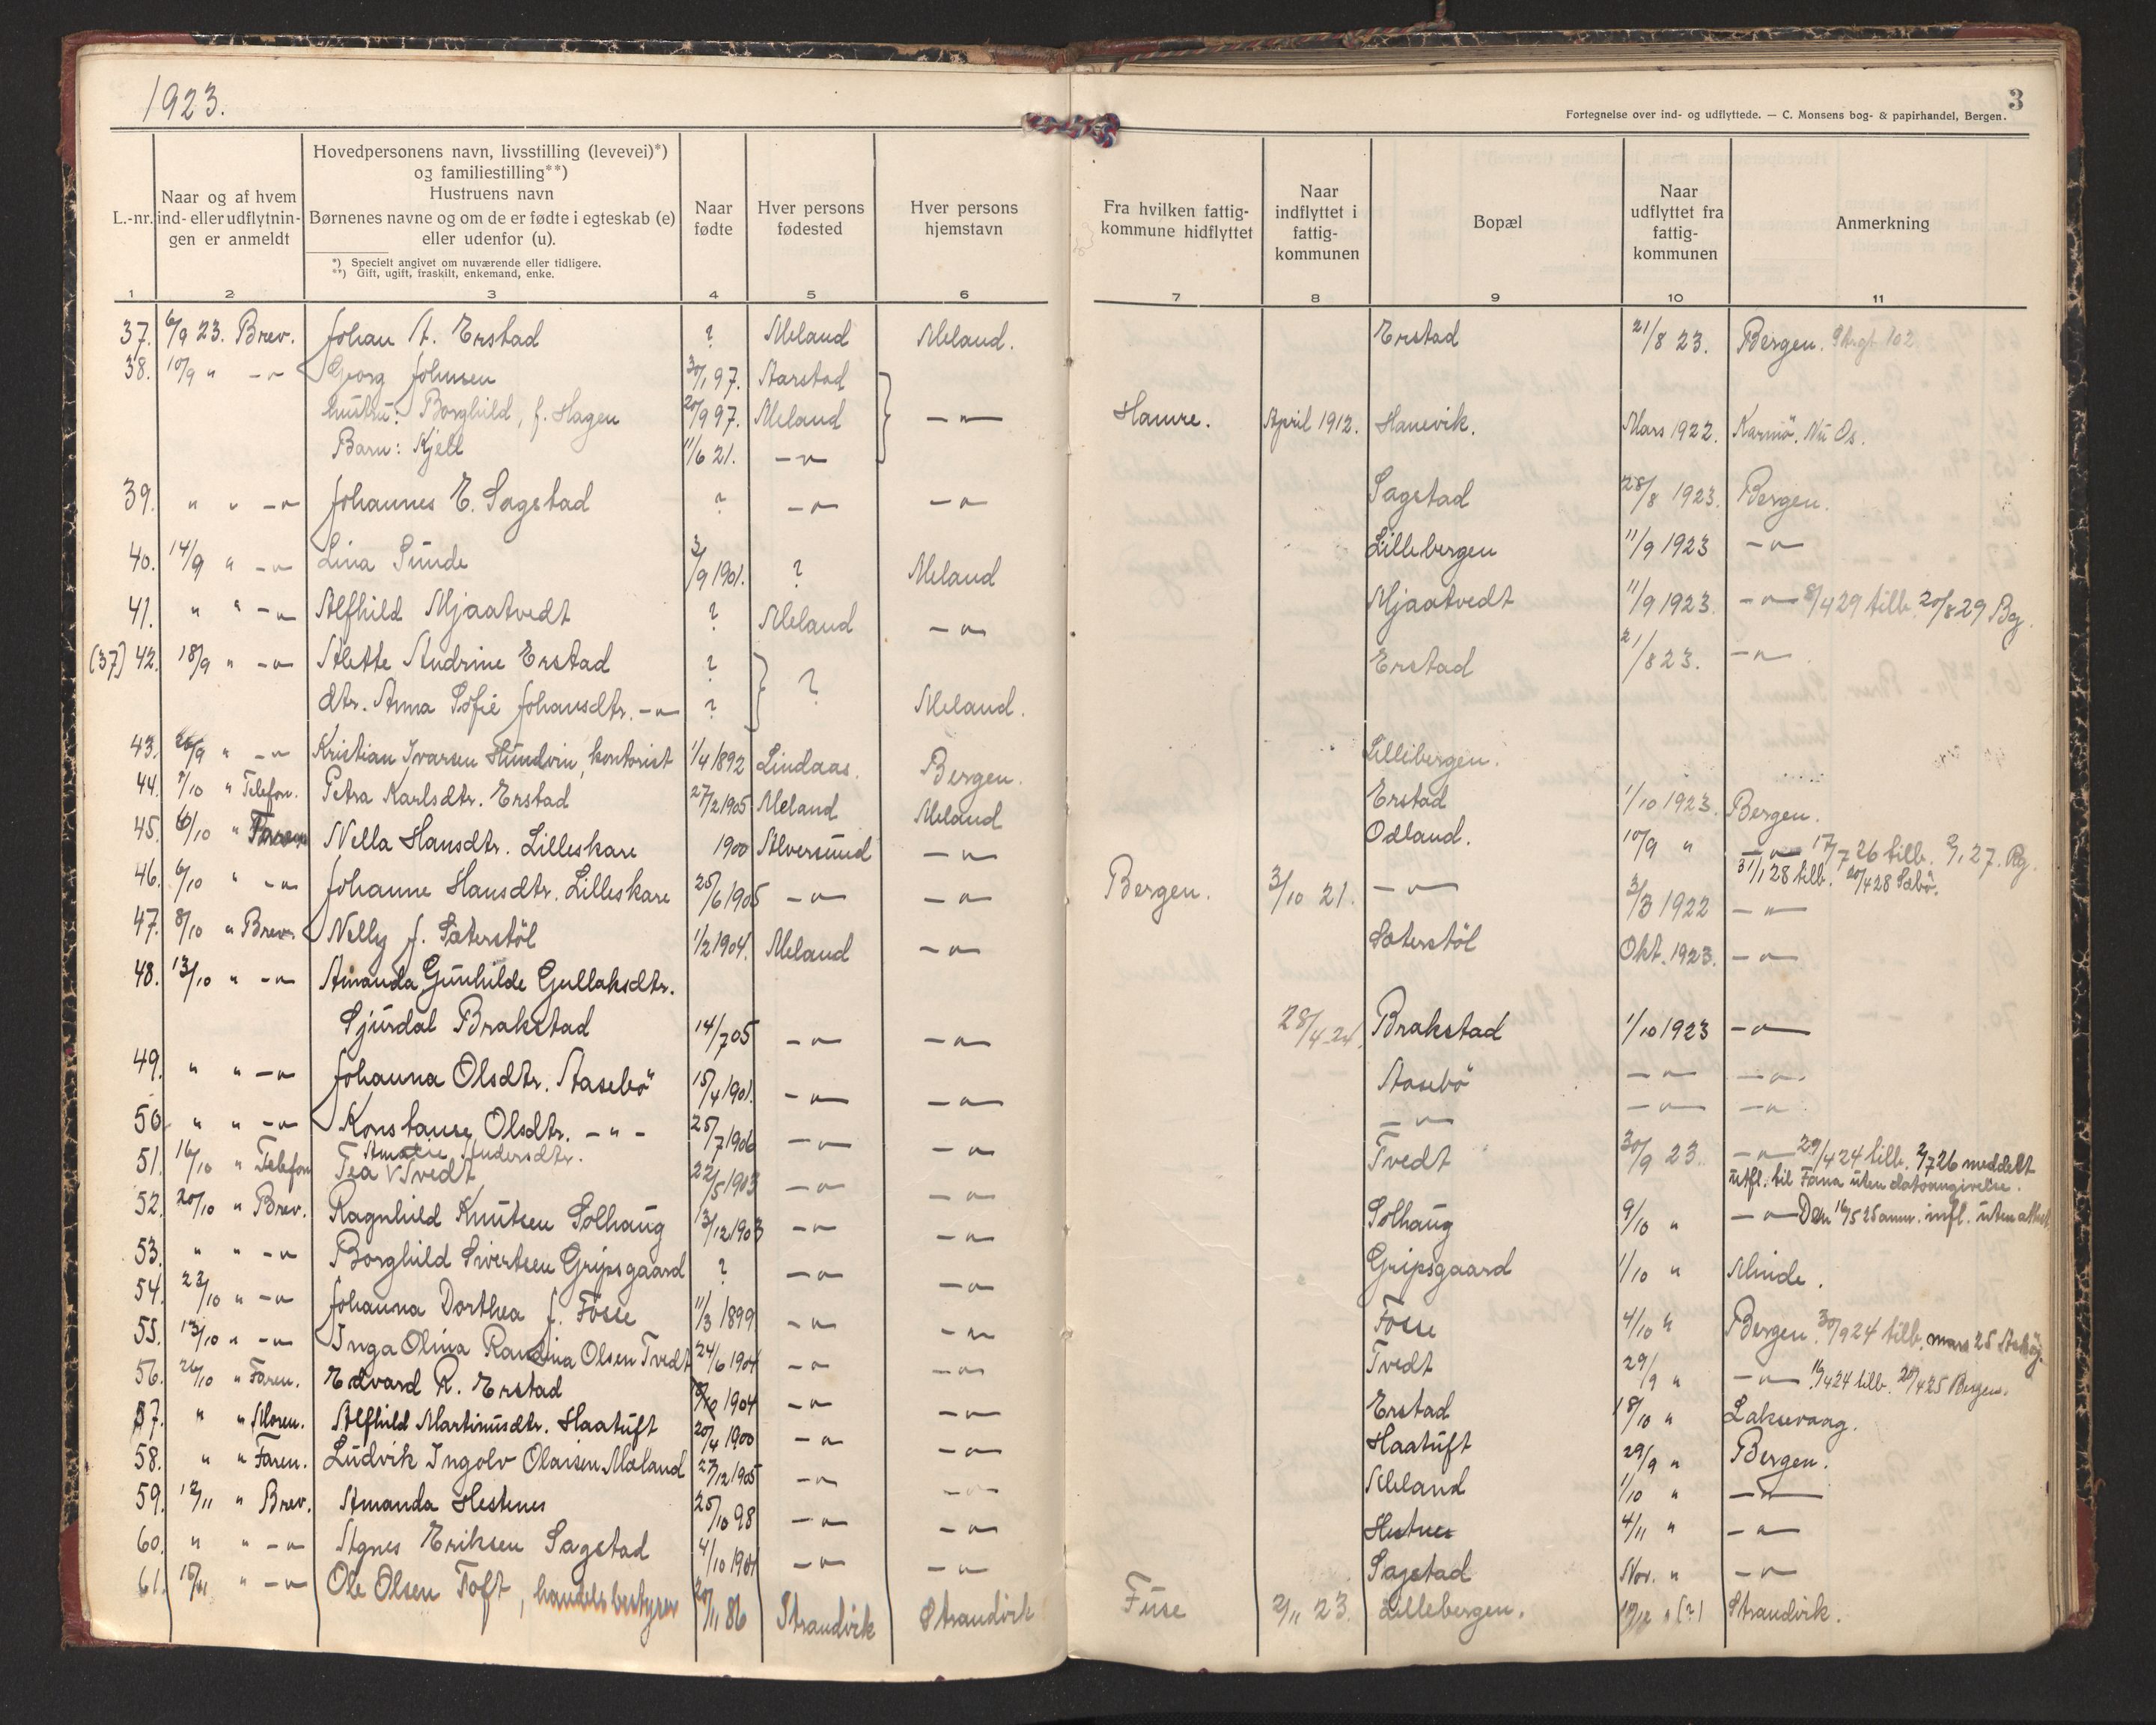 1923.
3
Fortegnelse over ind- og udflyttede. — C. Monsens bog- & papirhandel, Bergen.
L.-nr.
Naar og af hvem ind- eller udflytningen er anmeldt
Hovedpersonens navn, livsstilling (levevei)*)
og familiestilling**)
Hustruens navn
Børnenes navne og om de er fødte i egteskab (e)
eller udenfor (u).
*) Specielt angivet om nuværende eller tidligere.
**) Gift, ugift, fraskilt, enkemand, enke.
Naar fødte
Hver persons fødested
Hver persons hjemstavn
Fra hvilken fattigkommune hidflyttet
Naar indflyttet i fattigkommunen
Bopæl
Naar udflyttet fra fattigkommunen
Anmerkning
1 2 3 4 5 6 7 8 9 10 11
37. 6/9 23. Brev. Johan A. Erstad ? Meland Meland. Erstad 21/8 23. Bergen. 102
38. 10/9 " -"- Georg Johnsen 30/1 97. Aarstad
hustru: Borghild, f. Hagen 20/9 97. Meland -"- Hamre. April 1912. Hanevik. Mars 1922. Karmö. Nu Os.
Barn: Kjell 11/6 21. -"-
39. " " -"- Johannes E. Sagstad ? -"- -"- Sagstad 28/8 1923. Bergen.
40. 14/9 " -"- Lina Sunde 3/9 1901. ? Meland Lillebergen 11/9 1923 -"-
41. " " -"- Alfhild Mjaatvedt ? Meland -"- Mjaatvedt 11/9 1923. -"- 8/4 29 tilb. 20/8 29 Bg.
(37) 42. 18/9 " -"- Alette Andrine Erstad ? ? Erstad 21/8 23. -"-
dtr. Anna Sofie Johansdtr. -"- ? Meland.
43. 26/9 " -"- Kristian Ivarsen Hundvin, kontorist 1/4 1892 Lindaas. Bergen. Lillebergen.
44. 2/10 " Telefon. Petra Karlsdtr. Erstad 27/2 1905 Meland Meland Erstad 1/10 1923. Bergen.
45. 6/10 " Faren Nella Hansdtr. Lilleskare 1900 Alversund -"- Odland. 10/9 " -"- 17/7 26 tilb. 2/1 27. Bg.
31/1 28 tilb. 20/4 28 Sæbö.
46. 6/10 " -"- Johanne Hansdtr. Lilleskare 25/6 1905 -"- -"- Bergen. 3/10 21. -"- 3/3 1922 -"-
47. 8/10 " Brev. Nelly f. Sæterstöl 1/2 1904. Meland -"- Sæterstöl Okt. 1923. -"-
48. 13/10 " -"- Amanda Gunhilde Gullaksdtr.
Sjurdal Brakstad 14/7 05 -"- -"- 28/4 24. Brakstad 1/10 1923 -"-
49. " " -"- Johanna Olsdtr. Aasebö 15/4 1901. -"- -"- Aasebö -"- -"-
50. " " -"- Konstanse Olsdtr. -"- 25/7 1906 -"- -"- -"- -"- -"-
51. 16/10 " Telefon Tea Amalie Andersdtr. Tvedt 22/5 1903 -"- -"- Tvedt 30/9 23. -"- 29/4 24 tilb. 2/7 26 meddelt
utfl. til Fana uten datoangivelse.
52. 20/10 " Brev. Ragnhild Knutsen Solhaug 13/12 1903 -"- -"- Solhaug 9/10 " -"- Den 16/5 25 anm. infl. uten attest
53. " " -"- Borghild Sivertsen Gripsgaard ? -"- -"- Gripsgaard 1/10 " Minde.
54. 22/10 " -"- Johanna Dorthea f. Fosse 11/3 1899 -"- -"- Fosse 4/10 " Bergen. 30/9 24 tilb. mars 25
55. 13/10 " -"- Inga Olina Randina Olsen Tvedt 24/6 1904 -"- -"- Tvedt 29/9 " -"- 1/4 24 tilb. 20/4 25 Bergen.
56. 26/10 " Faren. Edvard R. Erstad 1904 -"- -"- Erstad 18/10 " Laksevaag.
57. " " Moren. Alfhild Martinusdtr. Haatuft 20/4 1900 -"- -"- Haatuft 29/9 " Bergen.
58. " " Faren. Ludvik Ingolv Olaisen Mæland 27/12 1905 -"- -"- Meland 1/10 " -"-
59. 12/11 " Brev. Amanda Hestenes 25/10 98 -"- -"- Hestnes 4/11 " -"-
60. " " -"- Agnes Eriksen Sagstad 4/10 1901 -"- -"- Sagstad Nov. " -"-
61. 15/11 " -"- Ole Olsen Toft, handelsbestyrer 20/11 86 Strandvik Strandvik Fuse 2/11 23. Lillebergen. 19/12 " (?) Strandvik.